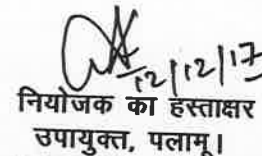 12/12/17
नियोजक का हस्ताक्षर
उपायुक्त, पलामू।